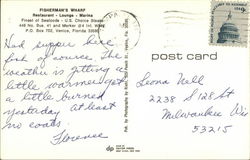 FISHERMAN'S WHARF
Restaurant - Lounge - Marina
Finest of Seafoods - U.S. Choice Steaks
Venice, Florida
Had supper here
fish of course. The
weather is getting a
little warmer get
a little burned
yesterday. At least
no coats.
Florence
post card
Leona Nell
2238 S 12 St
Milwaukee Wis
53215